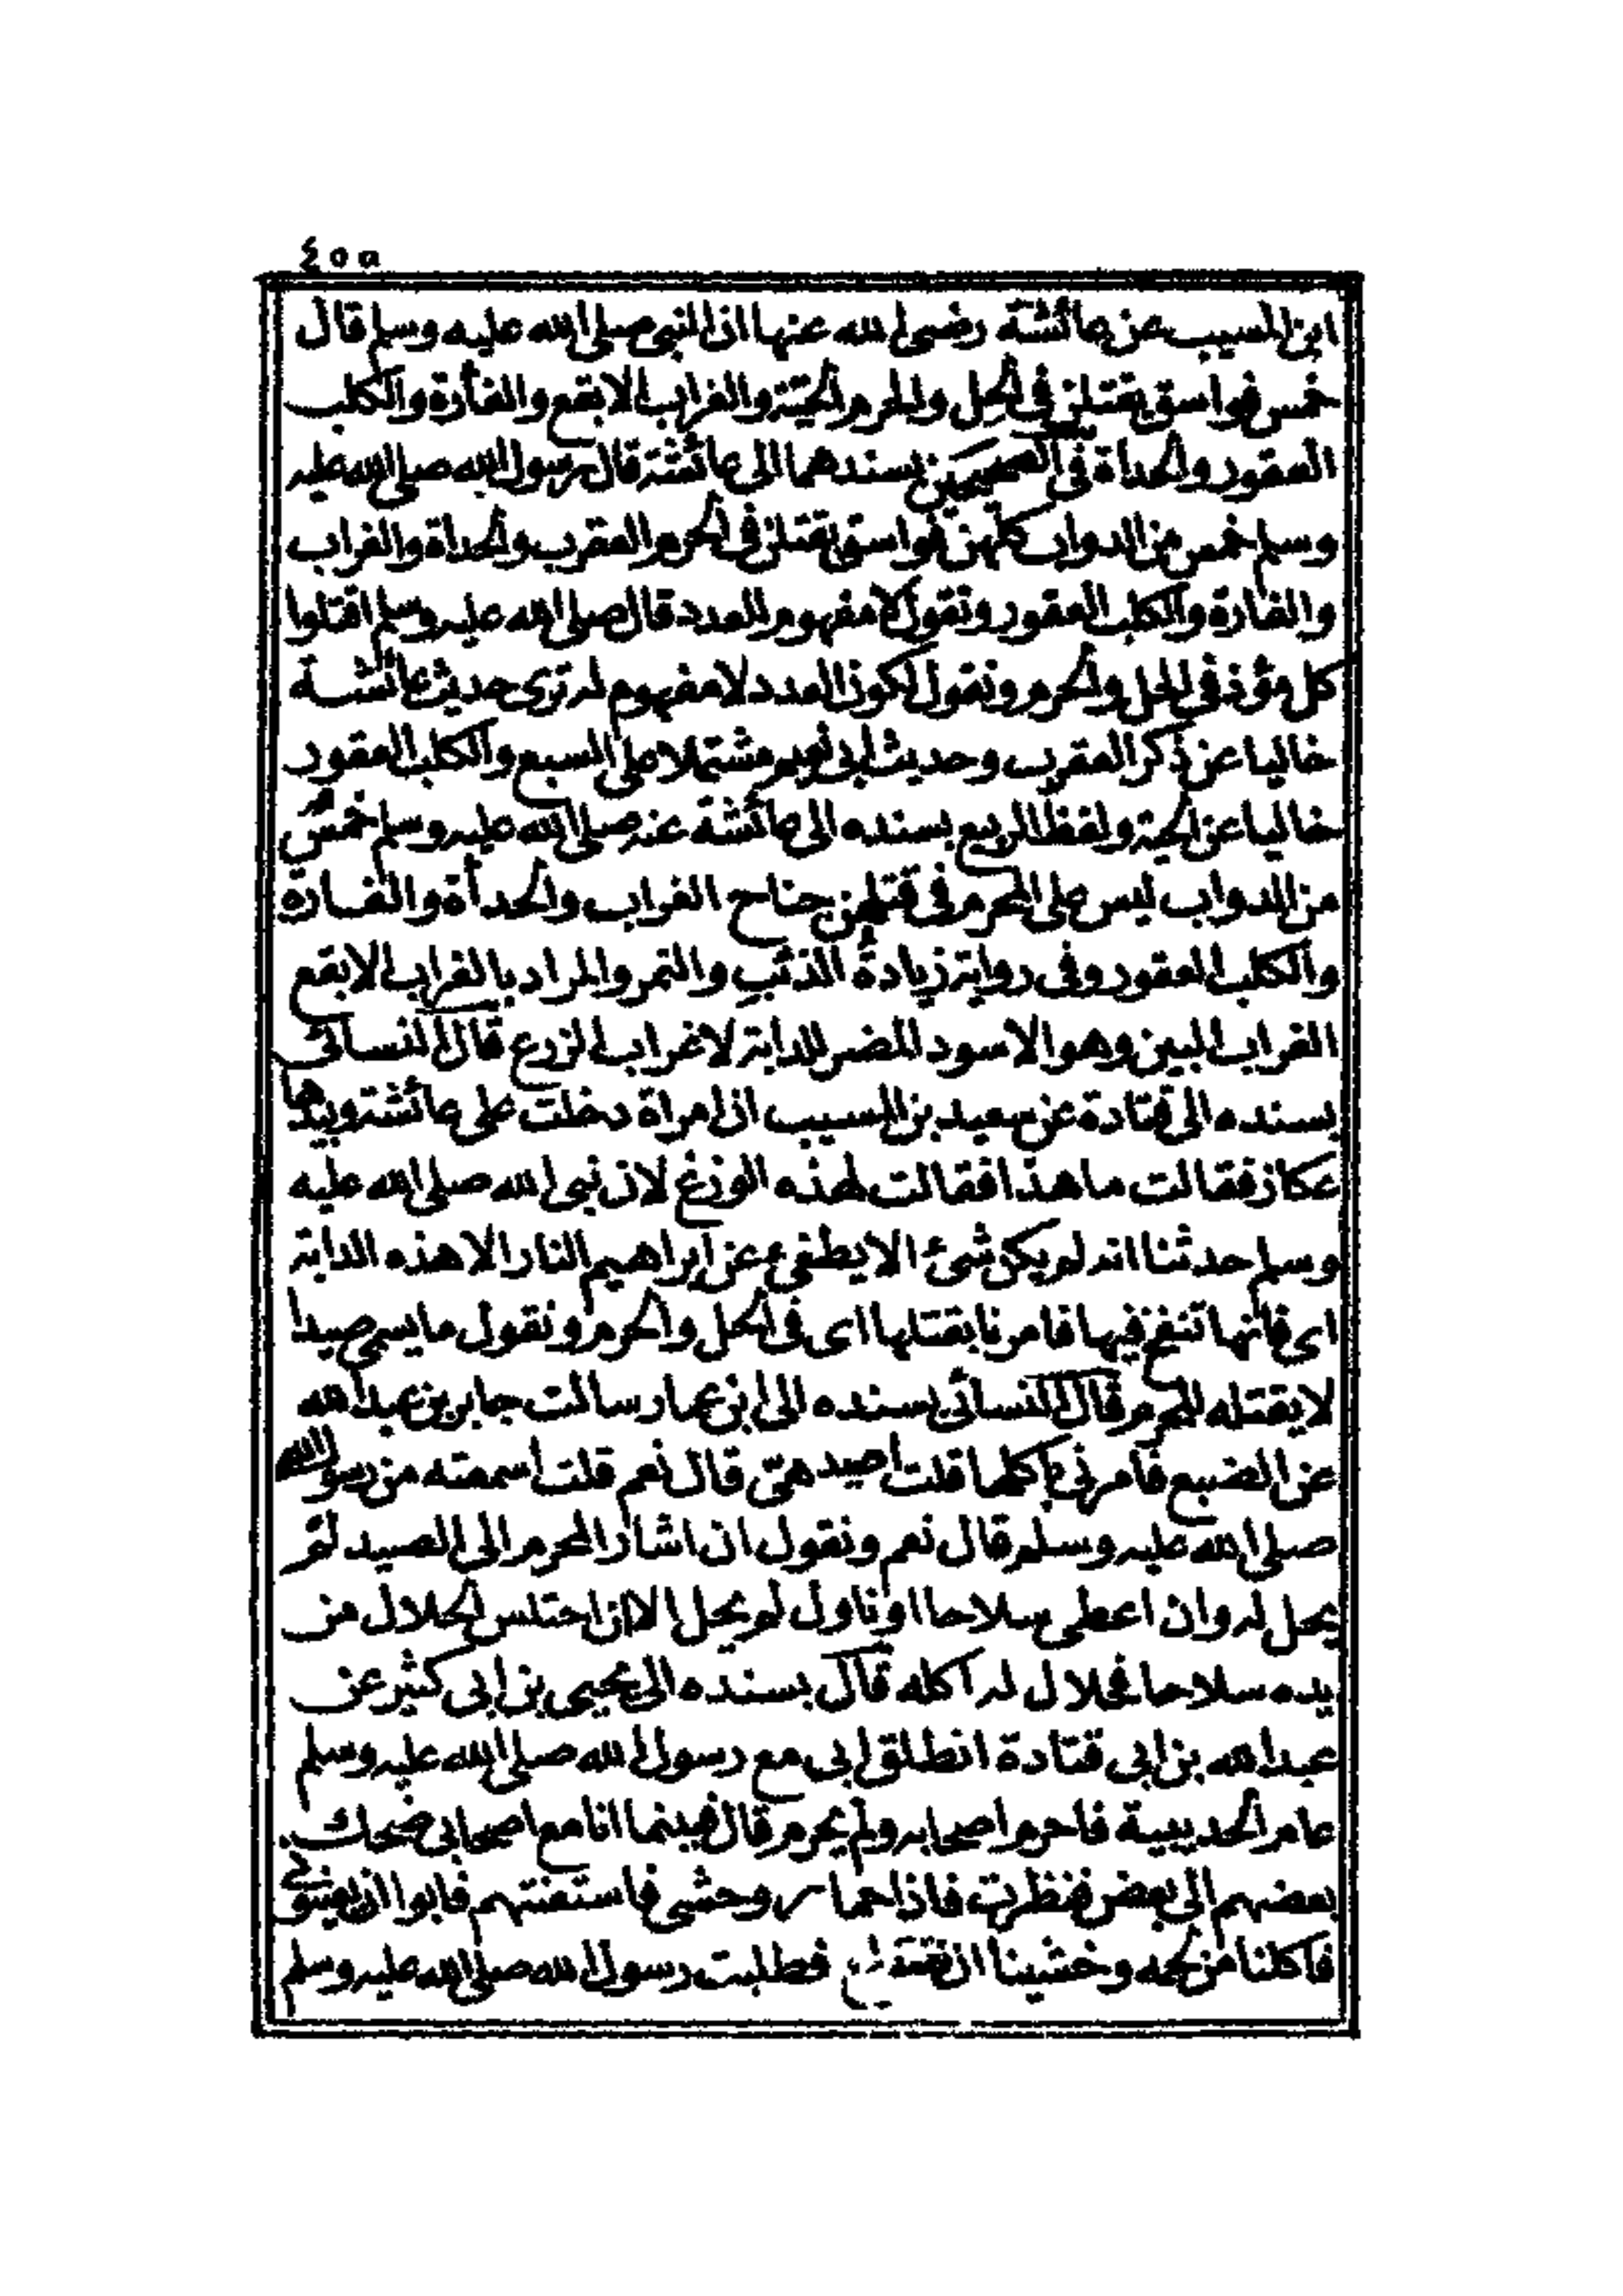 ٤٥٥
ابن المسيب عن عائشة رضي الله عنها ان النبي صلى الله عليه وسلم قال
خمس فواسق يقتلن في الحل والحرم الحية والغراب الابقع والفأرة والكلب
العقور والحدأة في الصحيحين بسندهما الى عائشة قال رسول الله صلى الله عليه
وسلم خمس من الدواب كلهن فواسق يقتلن في الحرم العقرب والحدأة والغراب
والفارة والكلب العقور ونقول لا مفهوم للعدد قال صلى الله عليه وسلم اقتلوا
كل مؤذ في الحل والحرم ونقول لكون العدد لا مفهوم له ترى حديث عائشة
خاليا عن ذكر العقرب وحديث ابي نعيم مشتملا على السبع والكلب العقور
خاليا عن الحية ولفظ الربيع بسنده الى عائشة عنه صلى الله عليه وسلم خمس
من الدواب ليس على المحرم في قتلهن جناح الغراب والحدأة والفارة
والكلب العقور وفي رواية زيادة الذئب والنمر والمراد بالغراب الابقع
الغراب المبين وهو الاسود المضر للدابة لا غراب الزرع قال النسائي
بسنده الى قتادة عن سعيد بن المسيب ان امراة دخلت على عائشة وبيدها
عكاز فقالت ما هذا فقالت لهذه الوزغ لان نبي الله صلى الله عليه
وسلم حدثنا انه لم يكن شئ الا يطفئ عن ابراهيم النار الا هذه الدابة
اي فانها تنفخ فيها فامرنا بقتلها اى في الحل والحرم ونقول ما يسمى صيدا
لا يقتله المحرم قال النسائي بسنده الى ابن عمار سالت جابر بن عبد الله
عن الضبع فامرني باكلها قلت اصيد هي قال نعم قلت اسمعته من رسول الله
صلى الله عليه وسلم قال نعم ونقول ان اشار المحرم الى الصيد لم
يحل له وان اعطى سلاحا او ناول لم يحل الا ان اختلس الحلال من
يده سلاحا فحلال له اكله قال بسنده الى يحيى بن ابي كثير عن
عبد الله بن ابي قتادة انطلق ابي مع رسول الله صلى الله عليه وسلم
عام الحديبية فاحرم اصحابه ولم يحرم قال فبينما انا مع اصحابي ضحك
بعضهم الى بعض فنظرت فاذا حمار وحشي فاستعنتهم فابوا ان يعينوني
فاكلنا من لحمه وخشينا ان نقتطع فطلبت رسول الله صلى الله عليه وسلم